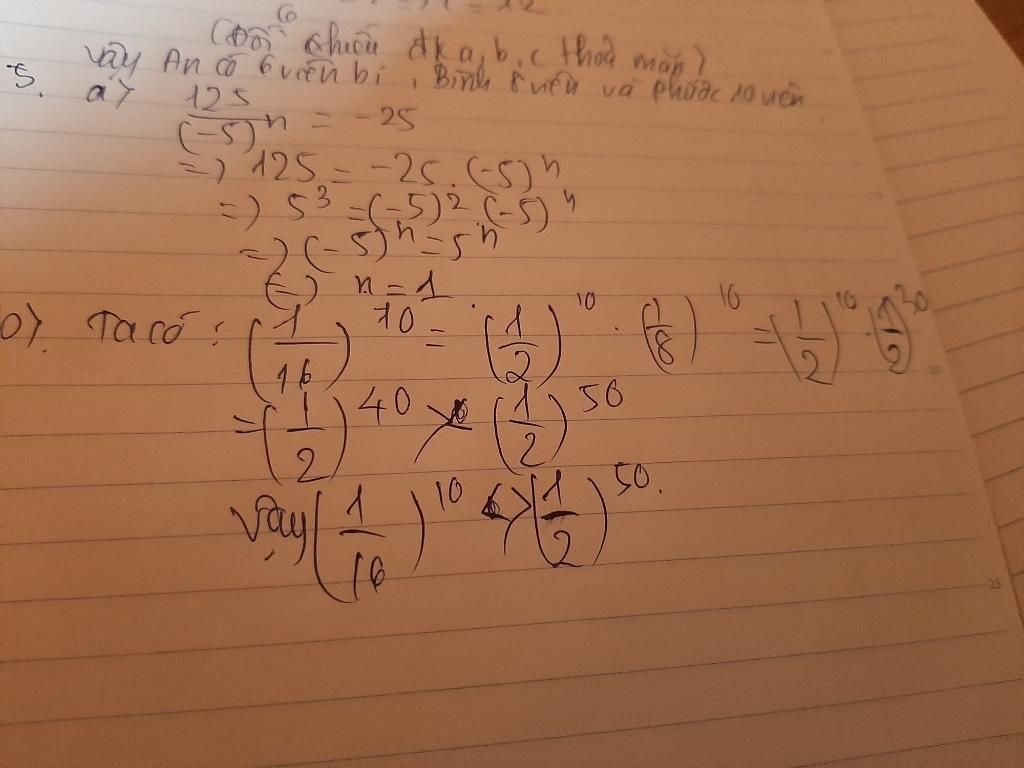 (Đối chiếu đk a, b, c thoả mãn)
Vậy An có 6 viên bi, Bình 8 viên và Phước 10 viên
5. a) 125/(-5)^n = -25
=) 125 = -25.(-5)^n
=) 5^3 = (-5)^2.(-5)^n
=) (-5)^n = 5^n
(=) n = 1.
b). Ta có: (1/16)^10 = (1/2)^10 . (1/8)^10 = (1/2)^10 . (1/2)^30
= (1/2)^40 > (1/2)^50
Vậy (1/16)^10 > (1/2)^50.
25